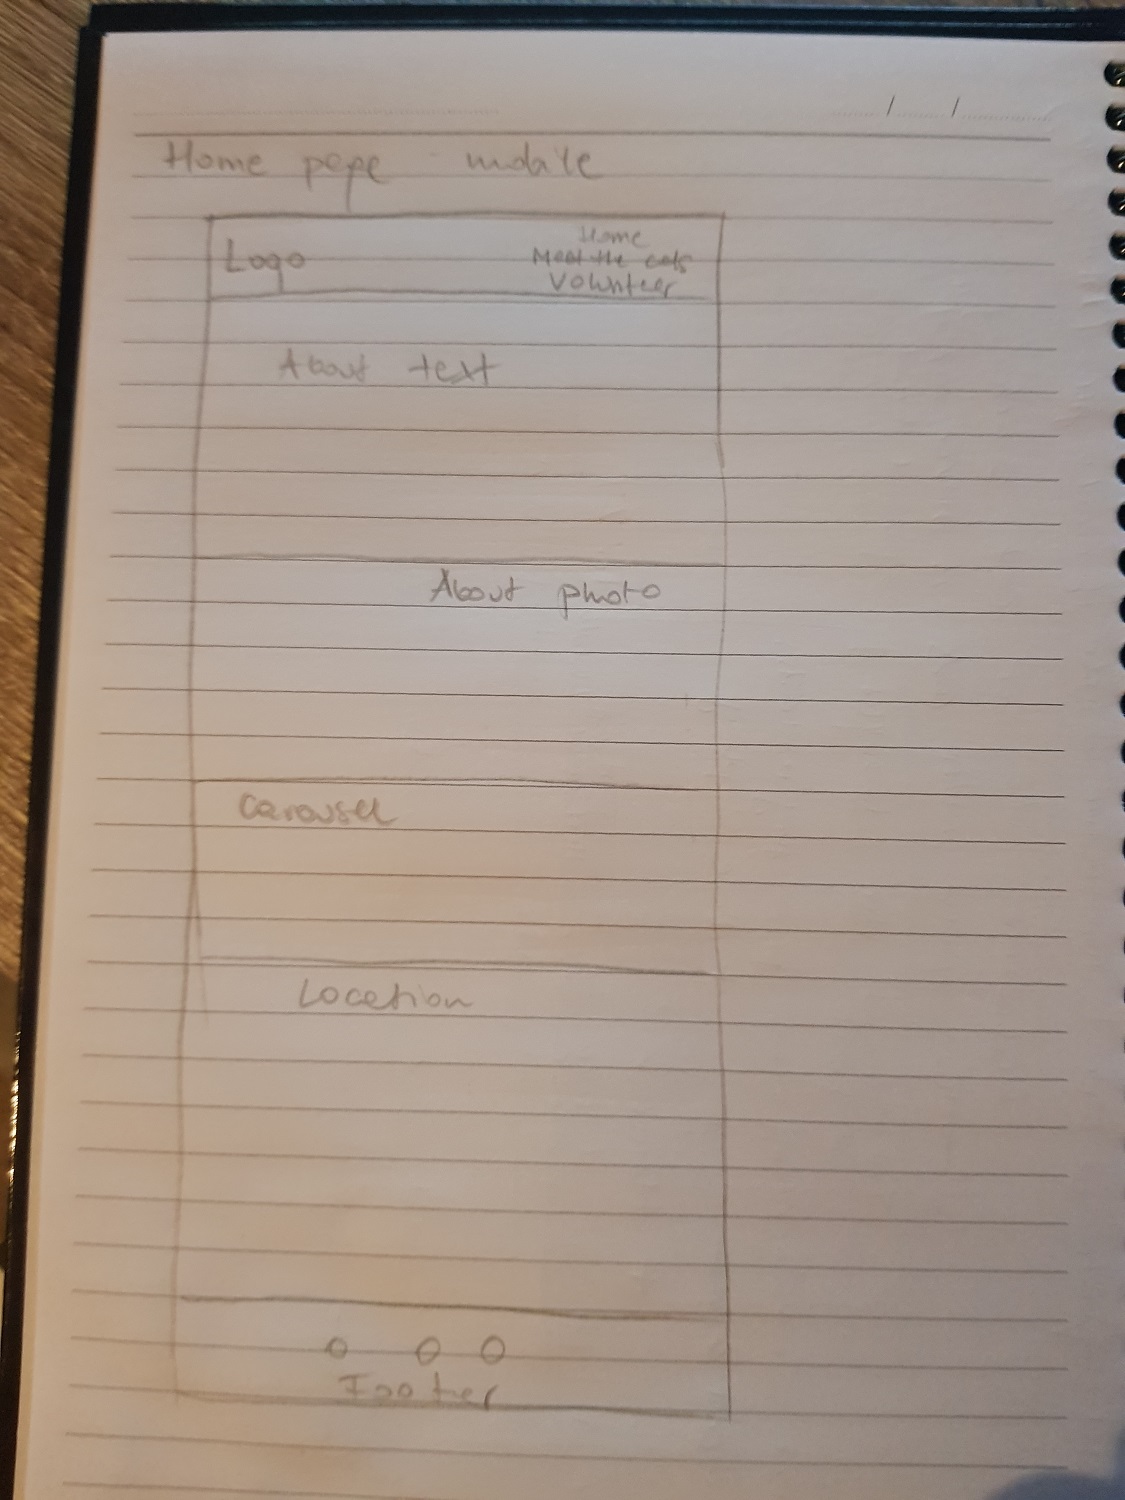 Home page - mobile
Logo
Home
Meet the cats
Volunteer
About text
About photo
Carousel
Location
Footer